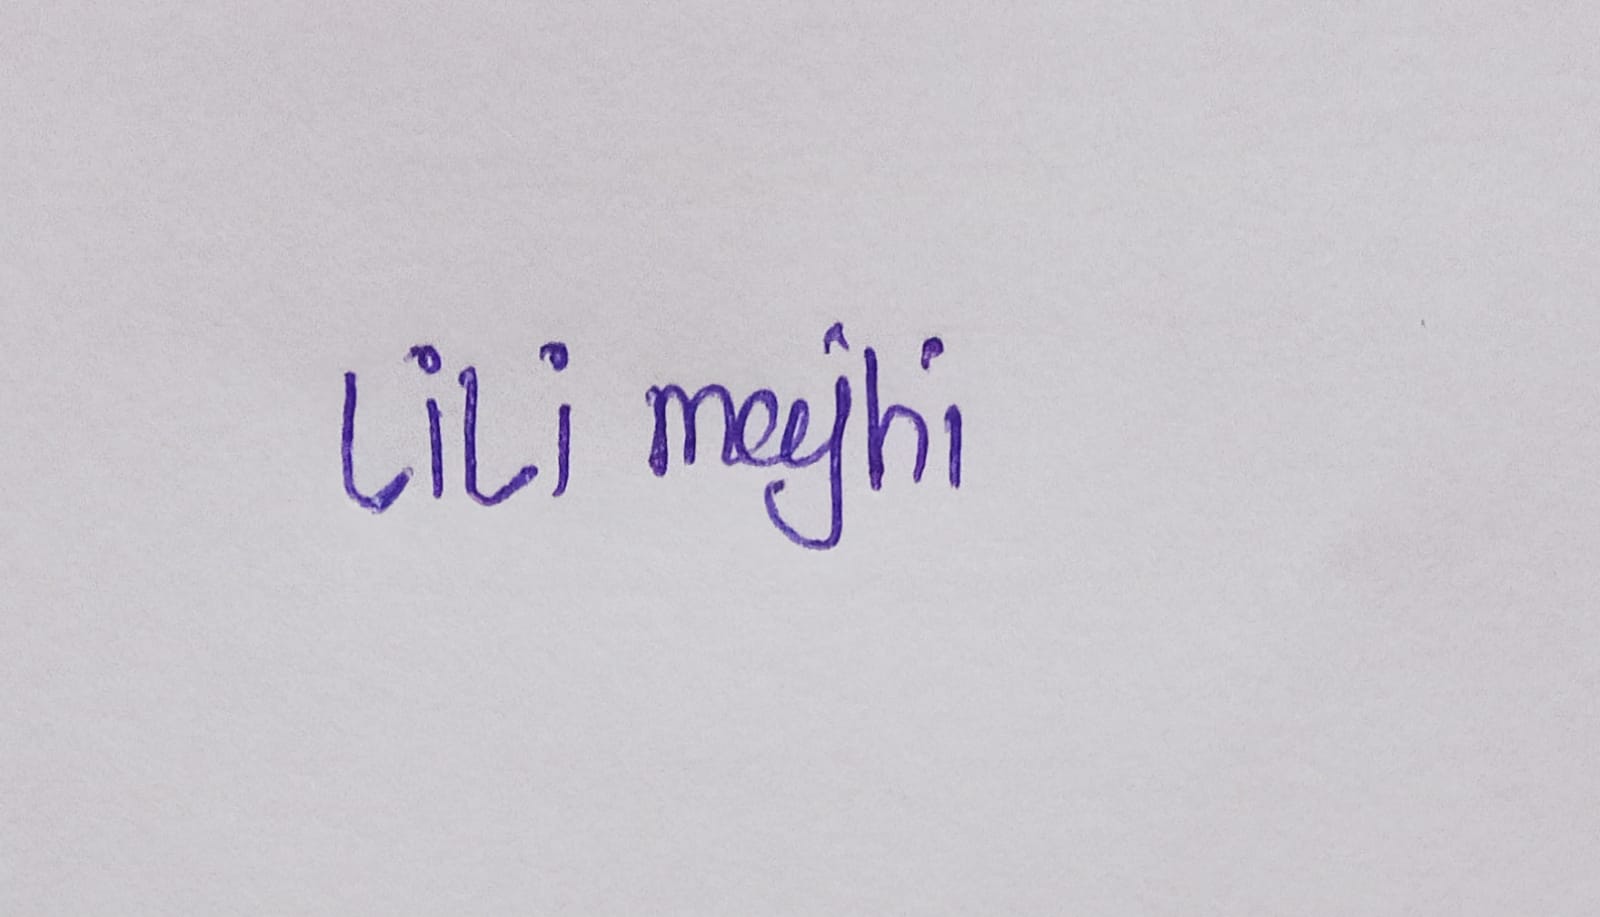 Lili majhi